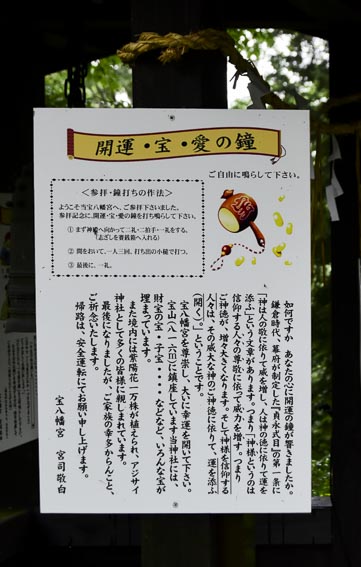 開運・宝・愛の鐘
ご自由に鳴らして下さい。
＜参拝・鐘打ちの作法＞
ようこそ当宝八幡宮へ、ご参拝下さいました。
参拝記念に、開運・宝・愛の鐘を打ち鳴らして下さい。
① まず神殿へ向かって二礼・二拍手・一礼をする。
（志ざしを賽銭箱へ入れる）
② 間をおいて、一人三回、打ち出の小槌で打つ。
③ 最後に、一礼。
如何ですか　あなたの心に開運の鐘が響きましたか。
鎌倉時代、幕府が制定した『貞永式目』の第一条に
「神は人の敬に依りて威を増し、人は神の徳に依りて運を
添ふ」という文章があります。つまり「神様というのは
信仰する人々の尊敬に依って威力を増す。つまり
ご神徳が、増々大きくなります。そして神様を信仰する
人々は、その広大な神のご神徳に依りて、運を添ふ
（開く）。」ということです。
宝八幡宮を尊崇し、大いに幸運を開いて下さい。
宝山（八一六㍍）に鎮座しています当神社には、
財宝の宝・子宝・・・・などなど、いろんな宝が
埋まっています。
また境内には紫陽花一万株が植えられ、アジサイ
神社として多くの皆様に親しまれています。
最後になりましたが、ご家族の幸多からんこと、
ご祈念いたします。
帰路は、安全運転にてお願い申し上げます。
宝八幡宮　宮司敬白